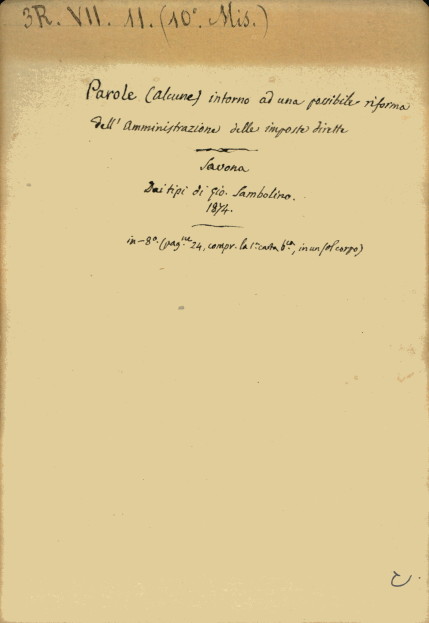 3R. VII. 11. (10ª Mis.)
Parole (Alcune) intorno ad una possibile riforma
dell' Amministrazione delle imposte dirette
Savona
Dai tipi di Gio. Sambolino.
1874.
in-8º. (pag.ne 24, compr. la 1ª carta b.ca, in un sol corpo)